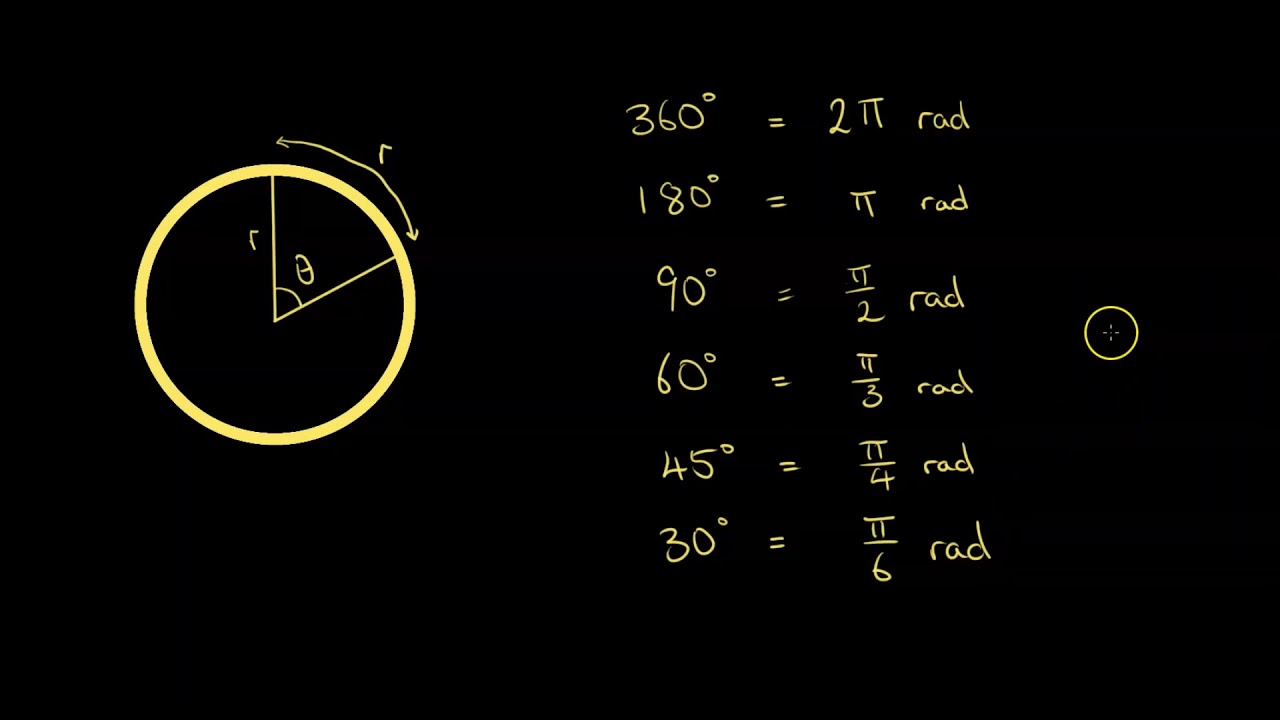 r
r
θ
360° = 2π rad
180° = π rad
90° = π/2 rad
60° = π/3 rad
45° = π/4 rad
30° = π/6 rad